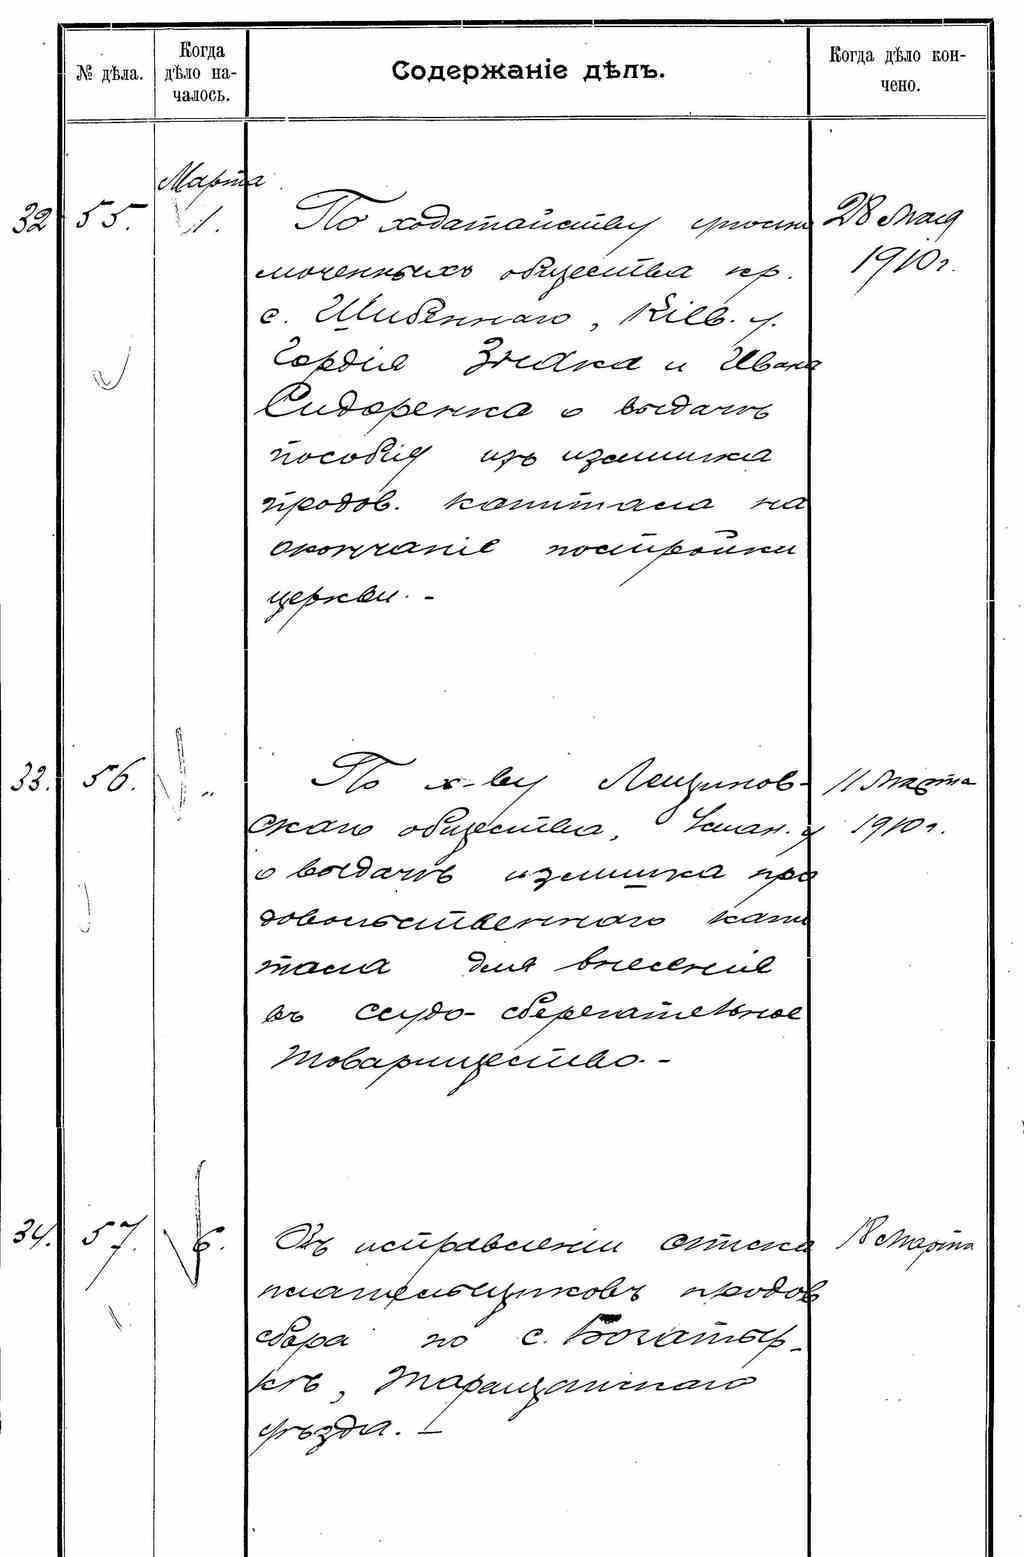 № дѣла.
Когда дѣло на-
чалось.
Содержаніе дѣлъ.
Когда дѣло кон-
чено.
Марта
32 55. 1. По ходатайству уполно 28 мая
моченныхъ общества кр. 1910 г.
с. Шибеннаго, Кіев. у.
Гордія Знака и Ивана
Сидоренка о выдачѣ
пособія изъ излишка
продов. капитала на
окончаніе постройки
церкви. -
33. 56. " По х-ву Лещинов- 11 марта
скаго общества, Уман. у 1910 г.
о выдачѣ излишка про
довольственнаго капи
тала для внесенія
въ ссудо-сберегательное
товарищество. -
34. 57. 6. Объ исправленіи списка 18 марта
плательщиковъ продов
сбора по с. Богатыр-
кѣ, Таращанскаго
уѣзда. -